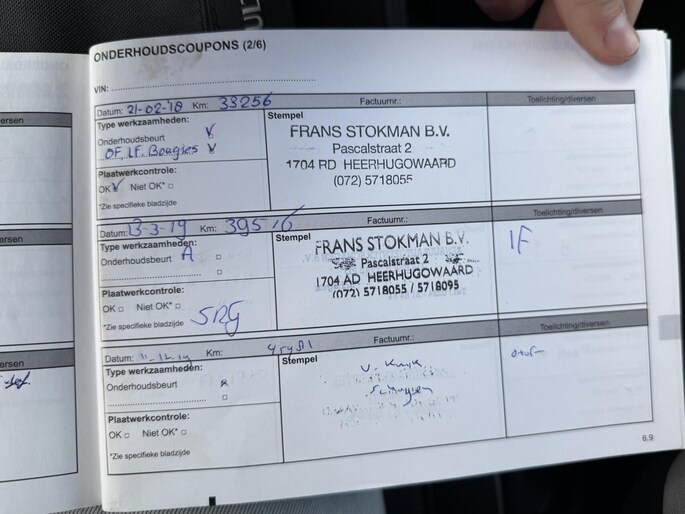 ONDERHOUDSCOUPONS (2/6)
VIN:
Datum: 21-02-18 Km: 33256
Factuurnr.:
Toelichting/diversen
Type werkzaamheden:
Onderhoudsbeurt
OF, I.F. Bougies
Plaatwerkcontrole:
OK Niet OK*
*Zie specifieke bladzijde
Stempel
FRANS STOKMAN B.V.
Pascalstraat 2
1704 RD HEERHUGOWAARD
(072) 5718055
Datum: 13-3-19 Km: 39516
Factuurnr.:
Toelichting/diversen
Type werkzaamheden:
Onderhoudsbeurt A
Plaatwerkcontrole:
OK Niet OK*
*Zie specifieke bladzijde
SRG
Stempel
FRANS STOKMAN B.V.
Pascalstraat 2
1704 AD HEERHUGOWAARD
(072) 5718055 / 5718095
IF
Datum: Km:
Factuurnr.:
Toelichting/diversen
Type werkzaamheden:
Onderhoudsbeurt
Plaatwerkcontrole:
OK Niet OK*
*Zie specifieke bladzijde
Stempel
6.9
ersen
ersen
ersen